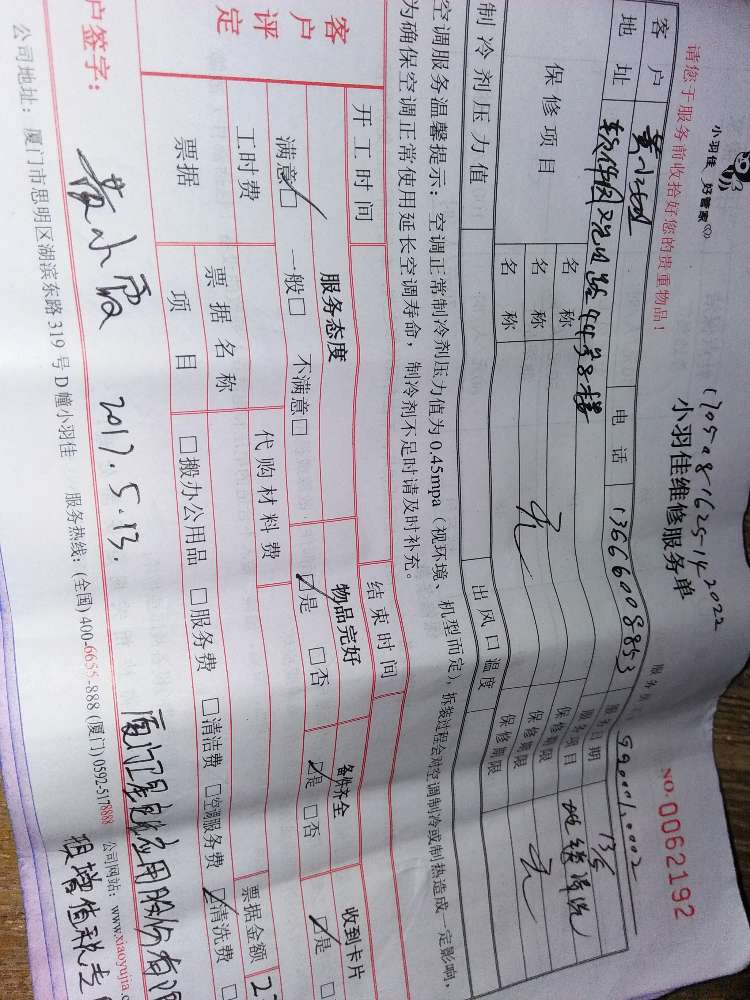 小羽佳 好管家
请您于服务前收拾好您的贵重物品!
170508162514 2022
小羽佳维修服务单
NO. 0062192
客户 黄小霞 电话 13666008853 服务日期 13/5
地址 软件园观日路44号8楼 服务项目 地毯清洗
保修项目 名称 无 保修期限 无
名称 保修期限
名称 保修期限
制冷剂压力值 出风口温度
空调服务温馨提示:空调正常制冷剂压力值为0.45mpa(视环境、机型而定),拆装过程会对空调制冷或制热造成一定影响,
为确保空调正常使用延长空调寿命,制冷剂不足时请及时补充。
开工时间 结束时间
客户评定 服务态度 物品完好 备件齐全 收到卡片
满意☑ 一般□ 不满意□ ☑是 □否 ☑是 □否 ☑是 □
工时费 代购材料费
票据 票据名称 票据金额
项目 □搬办公用品 □服务费 □清洁费 □空调服务费 ☑清洗费
户签字: 黄小霞 2017.5.13.
公司地址:厦门市思明区湖滨东路319号D幢小羽佳 服务热线:(全国)400-6655-888 (厦门)0592-5178888 公司网站:www.xiaoyujia.c
应用股份有限
增值税专